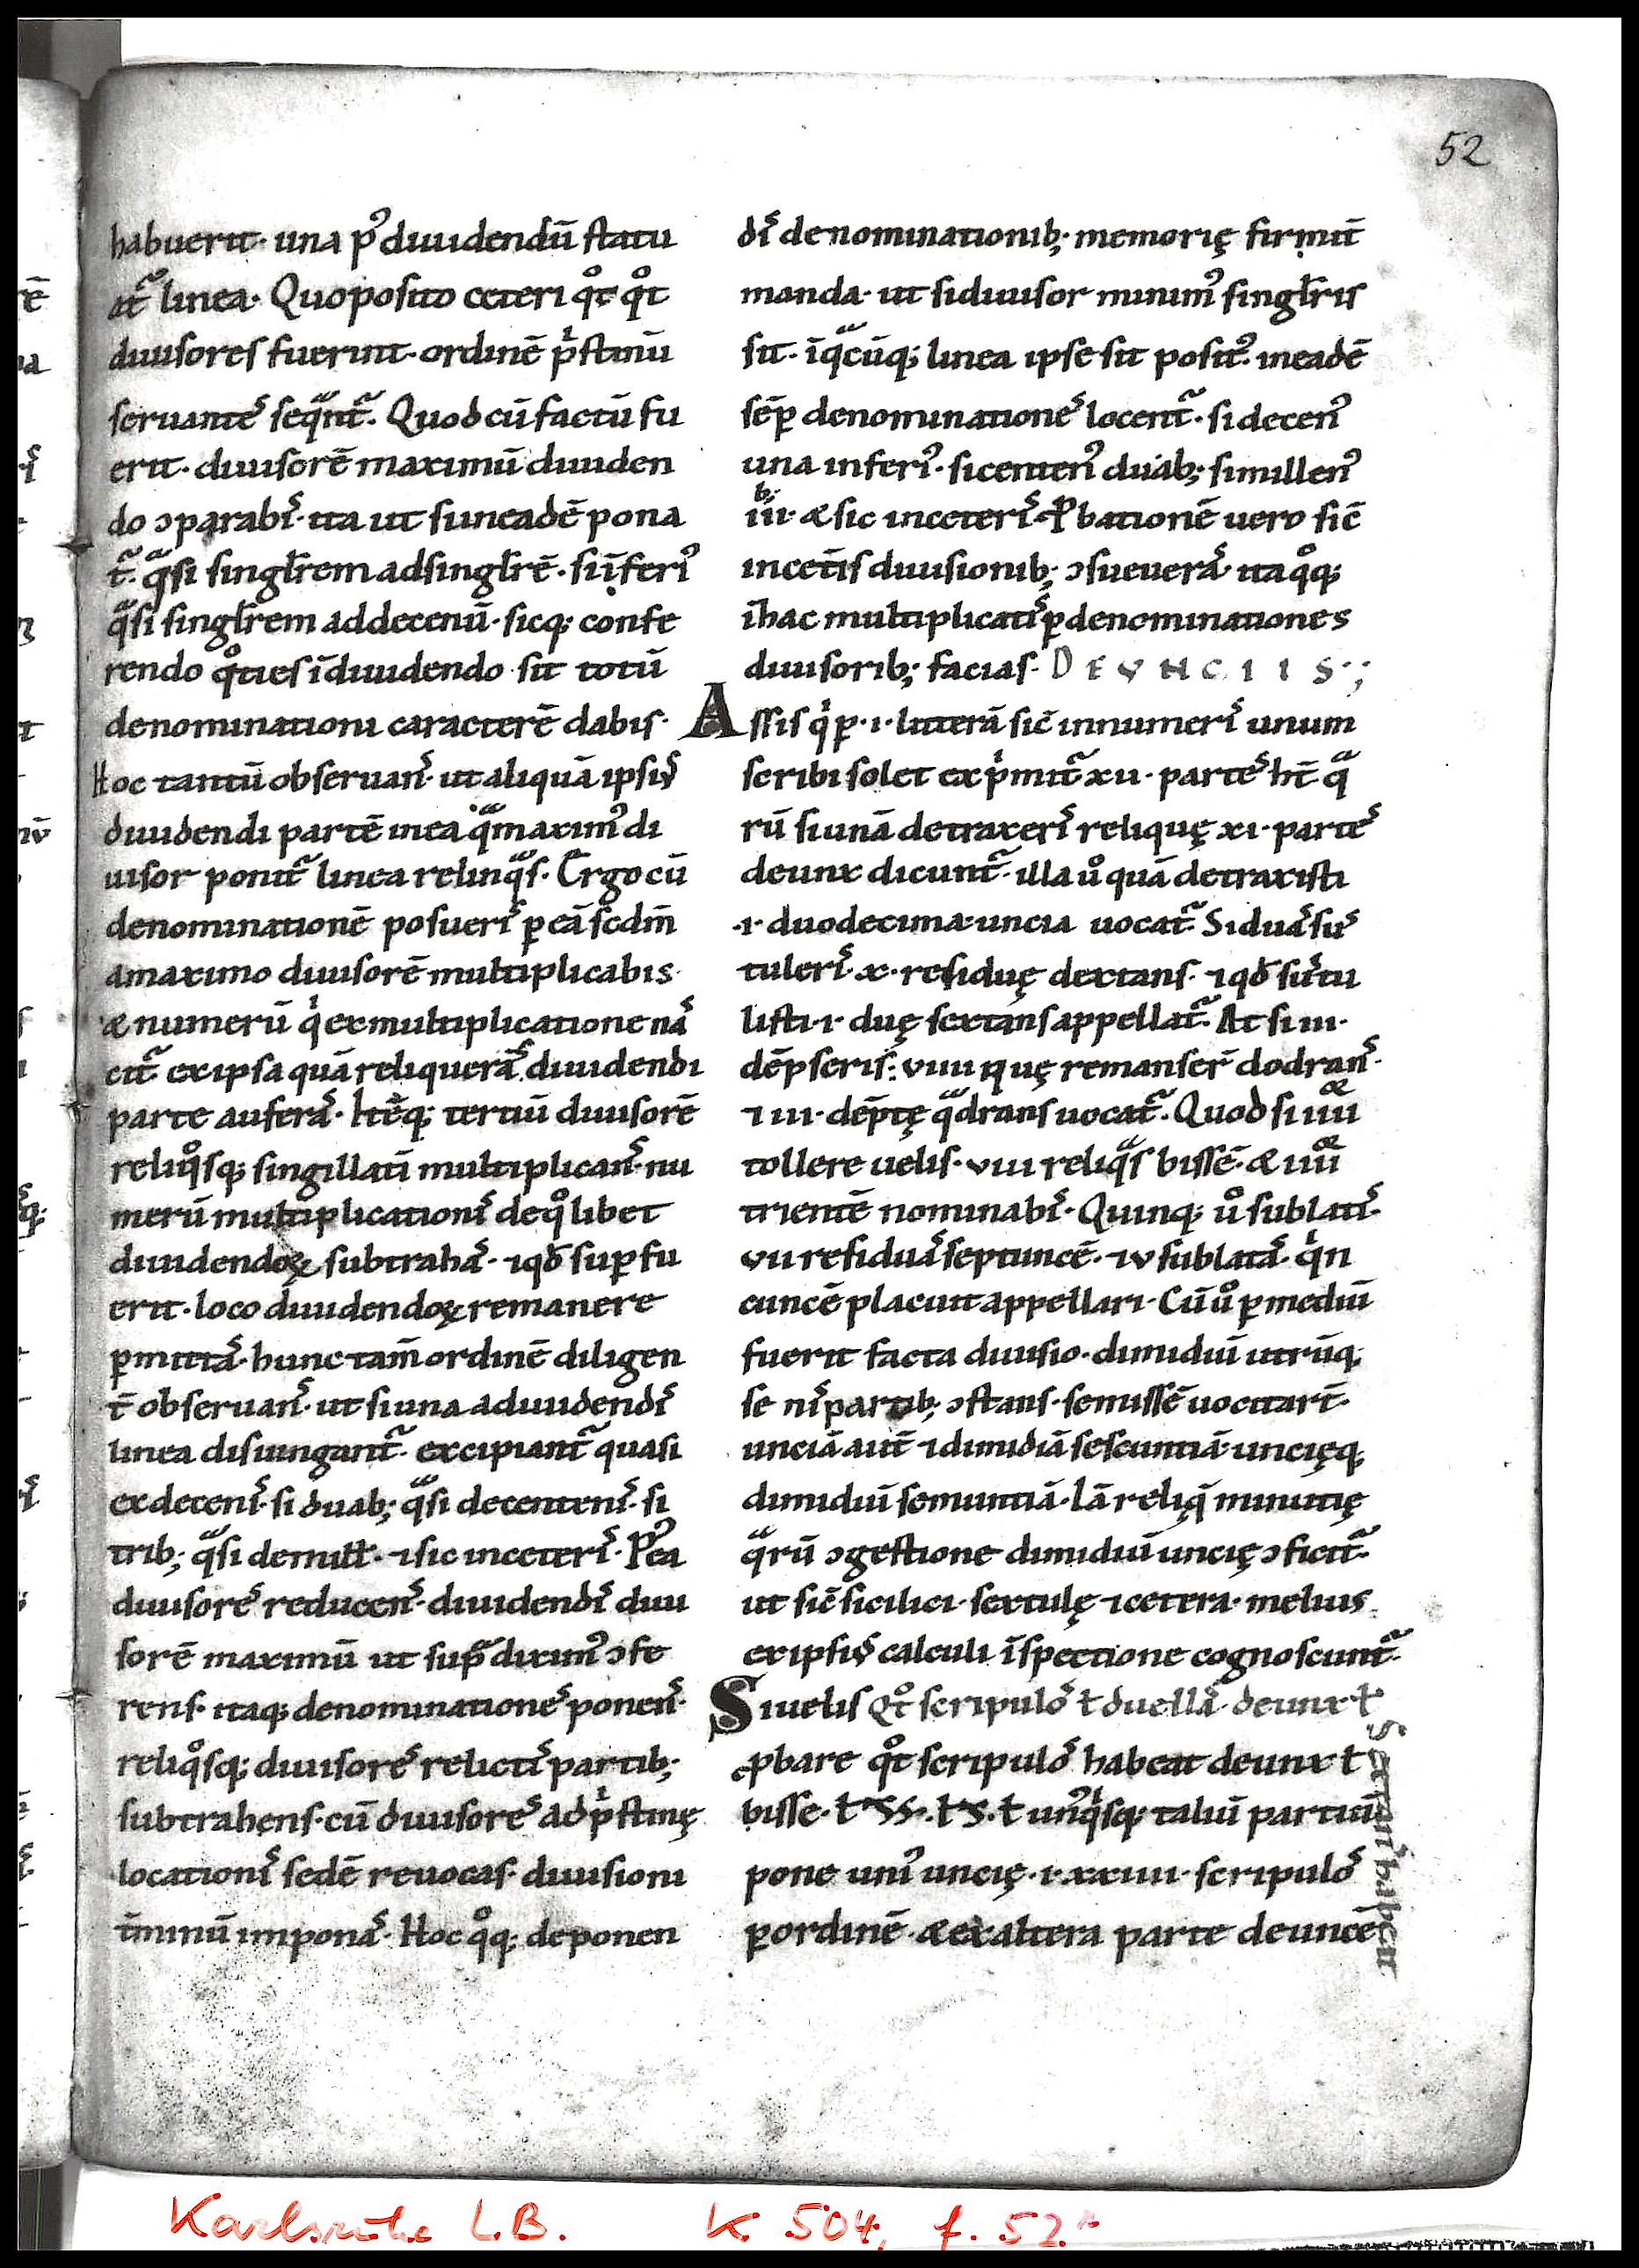 52
habuerit· una p᷒ diuidendū statu
at᷑ linea· Quo posito ceteri qͦt qͦt
diuisores fuerint· ordinē pͥstinū
seruante᷒ seqᷓnt᷑. Quod cū factū fu
erit· diuisorē maximū diuiden
do ɔparabi᷒· ita ut si ineadē pona
t᷑· qᷓsi singl̄rem adsingl̄rē· si īferi᷒
qᷓsi singl̄rem addecenū· sicq; confe
rendo qͦties ī diuidendo sit totū
denominationi caracterē dabis·
Hoc tantū obseruan᷒· ut aliquā ipsi᷒
diuidendi partē inea qᷓ maxim᷒ di
uisor ponit᷑ linea relinqᷓs· Ergo cū
denominationē posueri᷒ ꝑ eā scdm̄
amaximo diuisorē multiplicabis·
& numerū qͥ exmultiplicatione na᷒
cit᷑ exipsa quā reliquera᷒ diuidendi
parte aufera᷒· Itēq; tertiū diuisorē
reliqͦsq; singillatī multiplican᷒· nu
merū multiplicationi᷒ deqͦlibet
diuidendoꝝ subtraha᷒· ⁊qd̄ suꝑfu
erit· loco diuidendoꝝ remanere
ꝑmitta᷒· hunc tam̄ ordinē diligen
t̄ obseruan᷒· ut si una adiuidendi᷒
linea disiungant᷑· excipiant᷑ quasi
exdeceni᷒· si duab; qᷓsi decenteni᷒· si
trib; qᷓsi demill̄· ⁊sic inceteri᷒· P᷒ea
diuisore᷒ reducen᷒· diuidendi᷒ diui
sorē maximū ut supᷓ dixim᷒ ɔfe
rens· itaq; denominatione᷒ ponen᷒·
reliqͦsq; diuisore᷒ relicti᷒ partib;
subtrahens· cū diuisore᷒ ad pͥstinę
locationi᷒ sedē reuocas· diuisioni
t̄minū impona᷒· Hoc qͦq; deponen
di᷒ denominationib; memorię firmit̄
manda· ut sidiuisor minim᷒ singl̄ris
sit· ī qᷓcūq; linea ipse sit posit᷒· ineadē
sēꝑ denominatione᷒ locent᷑· si decen᷒
una inferi᷒· sicenteri᷒ duab; simillen᷒
b;
iii· & sic inceteri᷒· Ꝓbationē uero sic̄
incet̄is diuisionib; ɔsueuera᷒· ita qͦq;
ī hac multiplicati᷒ ꝑ denominationes
diuisorib; facias· DE VNCIIS·;
Assis qͥ ꝑ ·i· litterā sic̄ innumeri᷒ unum
scribi solet expͥmit᷑ xii· parte᷒ ht̄ qᷓ
rū siunā detraxeri᷒ reliquę xi· parte᷒
deunx dicunt᷑· illa uͦ quā detraxisti
·i· duodecima· uncia uocat᷑. Si dua᷒ su᷒
tuleri᷒· x· residuę dextans· ⁊qd̄ su᷒tu
listi·i· duę sextans appellat᷑. At si iii·
dēpseris· viiii quę remanser̄ dodran᷒·
⁊ iii· dēptę qᷓdrans uocat᷑. Quod si iiii
tollere uelis· viii reliqᷓs bissē· & iiii
trientē nominabi᷒· Quinq; uͦ sublati᷒·
vii residua᷒ septuncē· ⁊v sublata᷒· qͥn
cuncē placuit appellari· Cū uͦ ꝑ mediū
fuerit facta diuisio· dimidiū utrūq;
se ni᷒ partib; ɔstans· semissē uocitari᷒·
unciā aut̄ ⁊dimidiā sescuntiā· uncięq;
dimidiū semuntiā· Iā reliqͥ minutię
qᷓrū ɔgestione dimidiū uncię ɔficit᷑·
ut sic̄ sicilici· sextulę ⁊cetera· melius
exipsi᷒ calculi īspectione cognoscunt᷑·
Siuelis qͦt scripulo᷒ ł duella᷒ deunx ł
sextan᷒ habent
ꝓbare qͦt scripulo᷒ habeat deunx ł
bisse· ł SS· ł S· ł un᷒qͥsq; taliū partiū
pone uni᷒ uncię ·i· xxiiii· scripulo᷒
ꝑ ordinē· & exaltera parte deuncē
Karlsruhe L.B. K 504, f. 52r